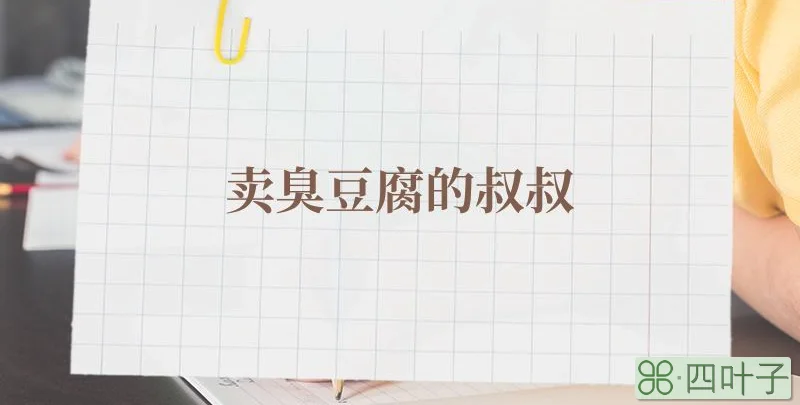 卖臭豆腐的叔叔
四叶子